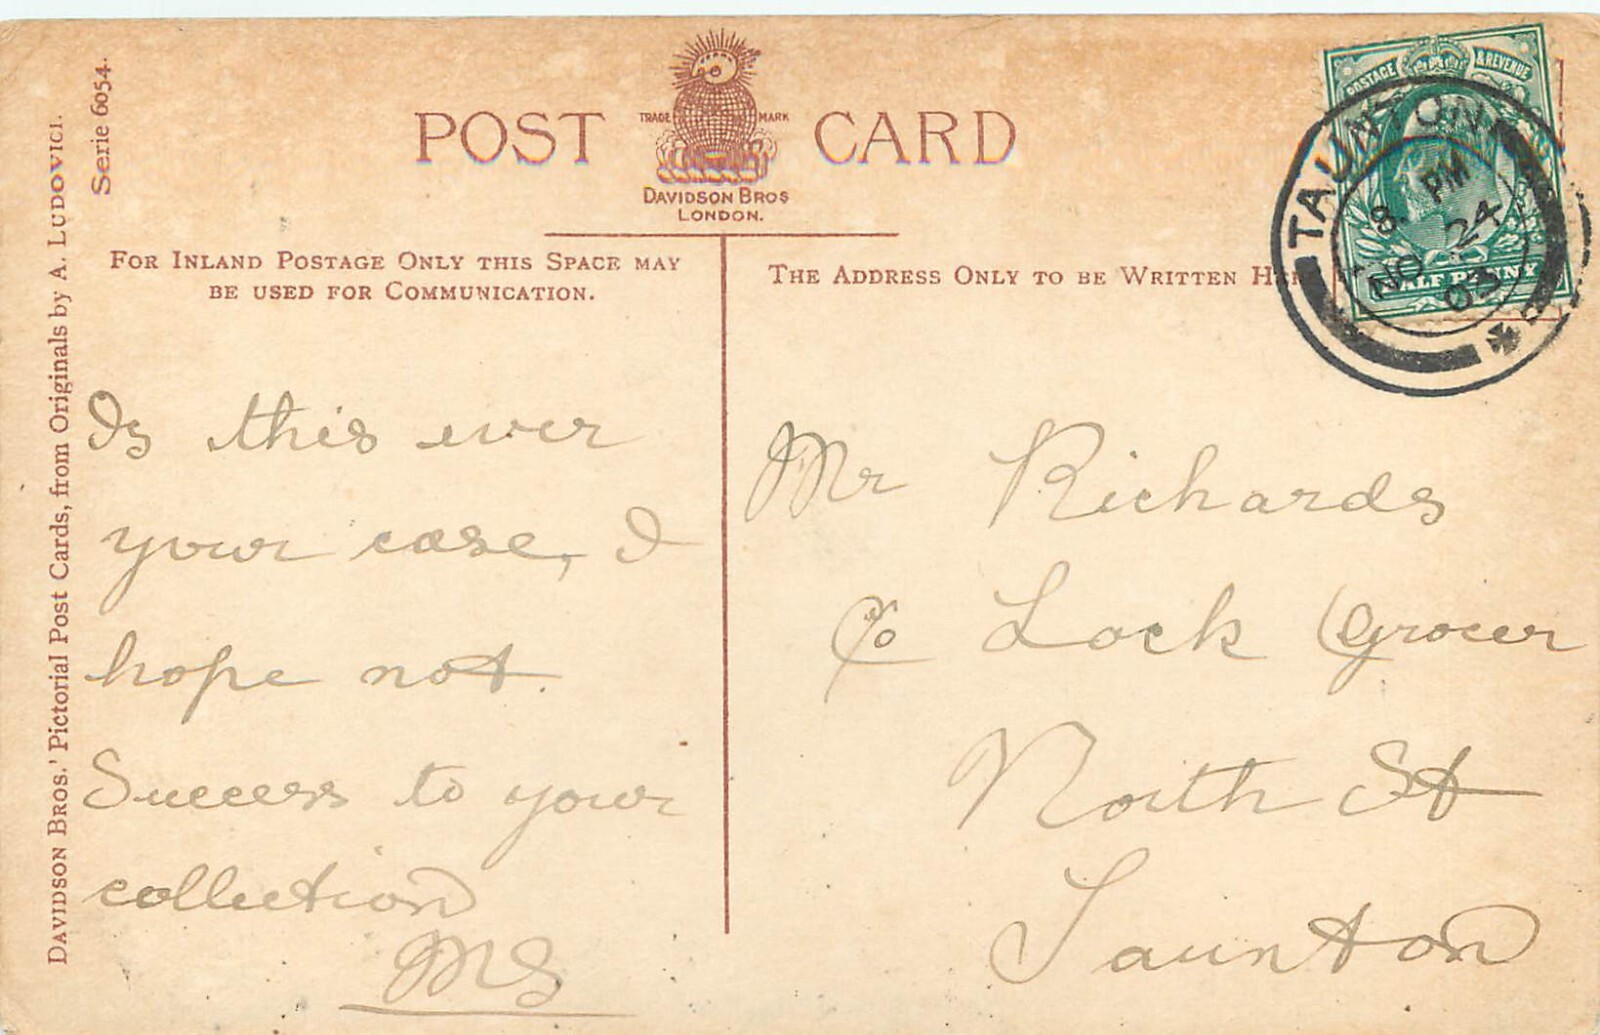 POST CARD
TRADE MARK
DAVIDSON BROS
LONDON.
POSTAGE & REVENUE
HALF PENNY
TAUNTON
8. PM
NO 24
03
DAVIDSON BROS.' Pictorial Post Cards, from Originals by A. LUDOVICI.
Serie 6054.
FOR INLAND POSTAGE ONLY THIS SPACE MAY
BE USED FOR COMMUNICATION.
THE ADDRESS ONLY TO BE WRITTEN
Is this ever
your case, I
hope not.
Success to your
collection
MS
Mr Richards
c/o Lock Grocer
North St
Taunton